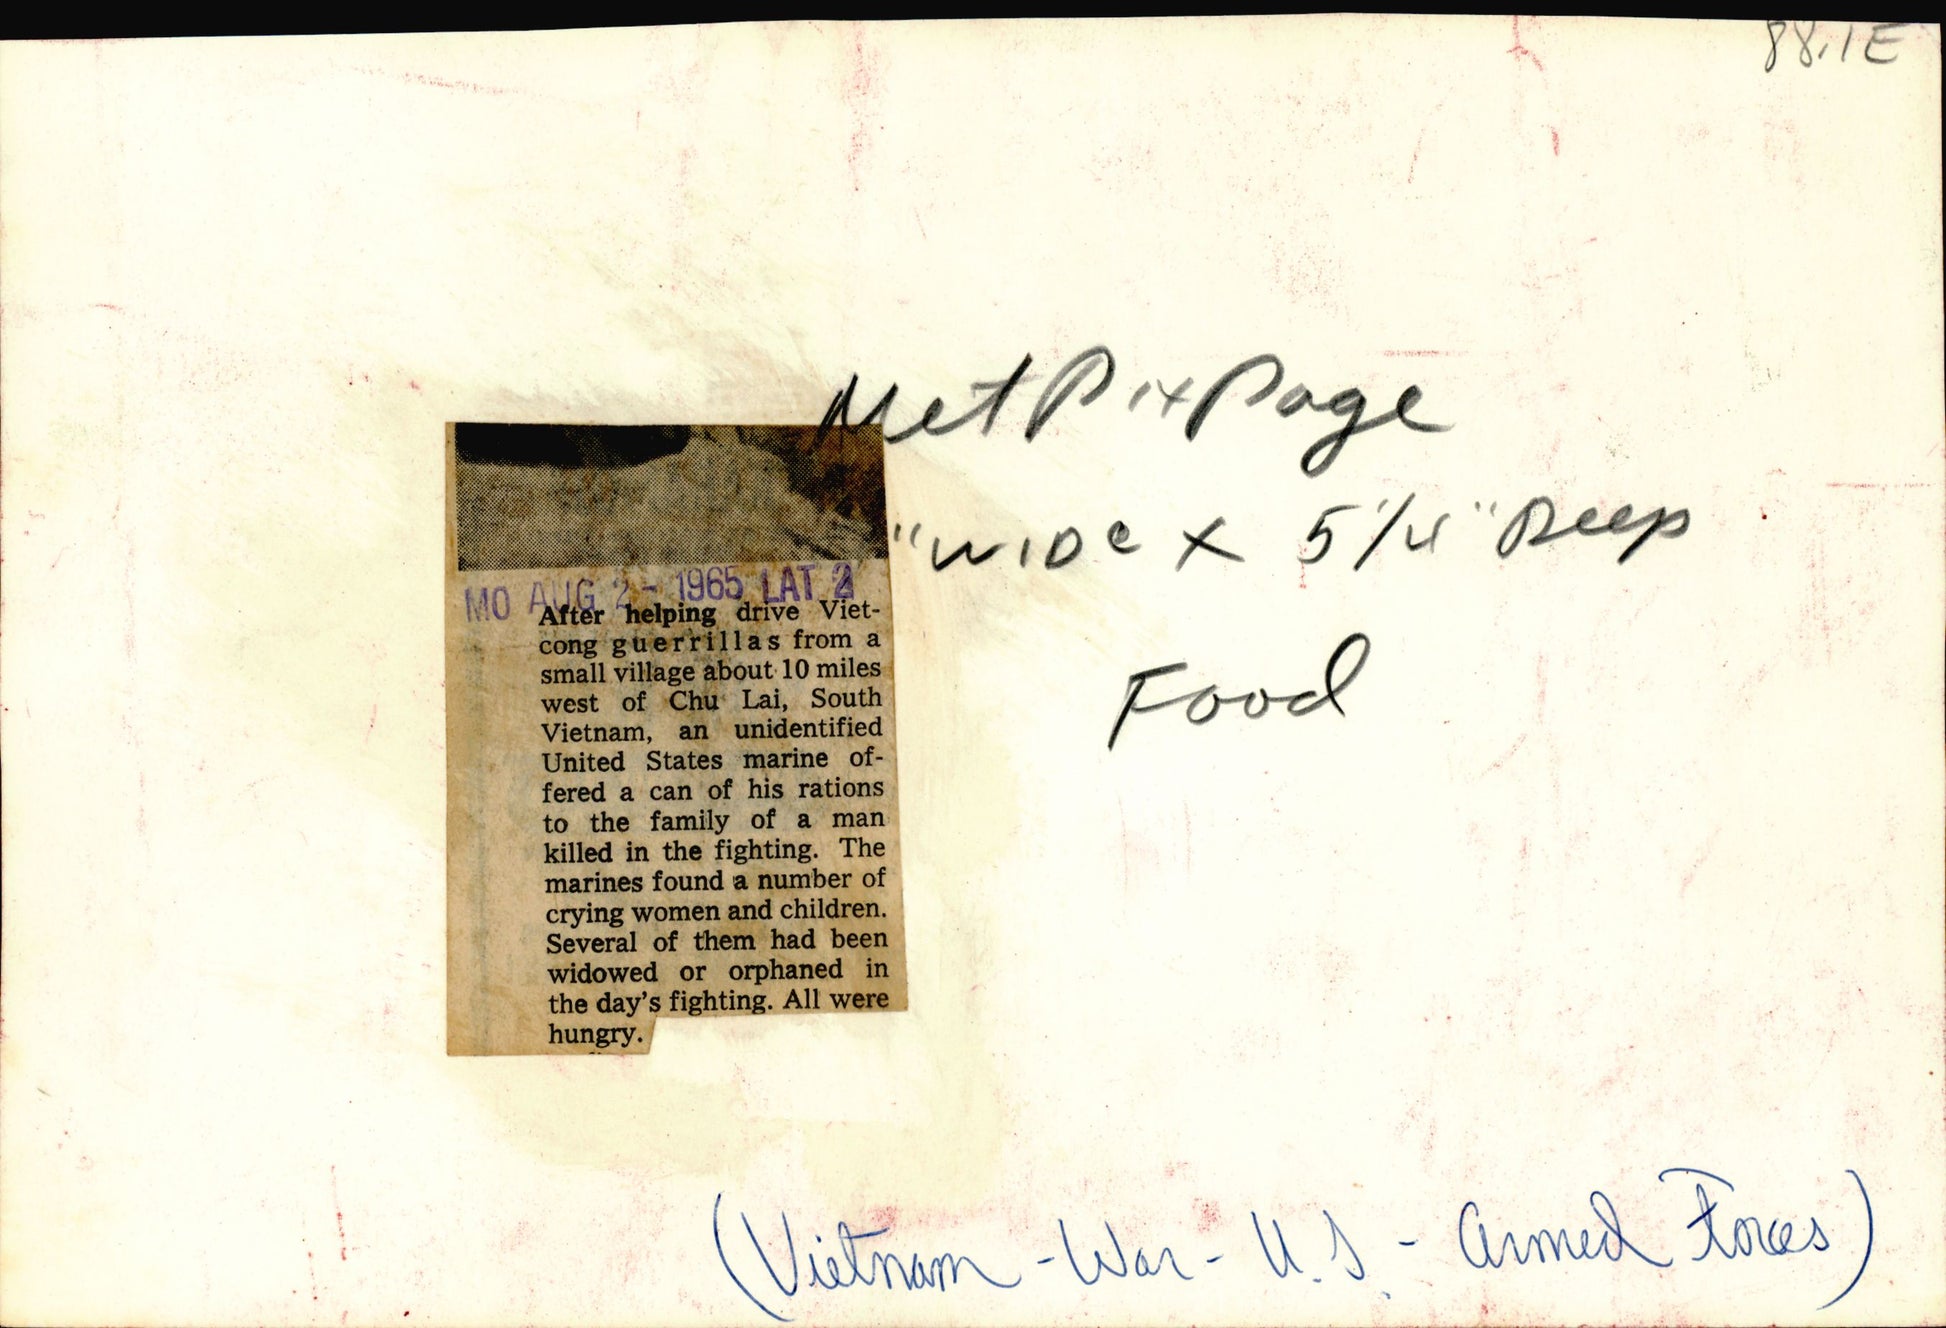 88.1E
Met Pix Page
"WIDe X 5 1/4" Deep
Food
MO AUG 2 - 1965 LAT 2
After helping drive Viet-
cong guerrillas from a
small village about 10 miles
west of Chu Lai, South
Vietnam, an unidentified
United States marine of-
fered a can of his rations
to the family of a man
killed in the fighting. The
marines found a number of
crying women and children.
Several of them had been
widowed or orphaned in
the day's fighting. All were
hungry.
(Vietnam - War - U.S. - Armed Forces)